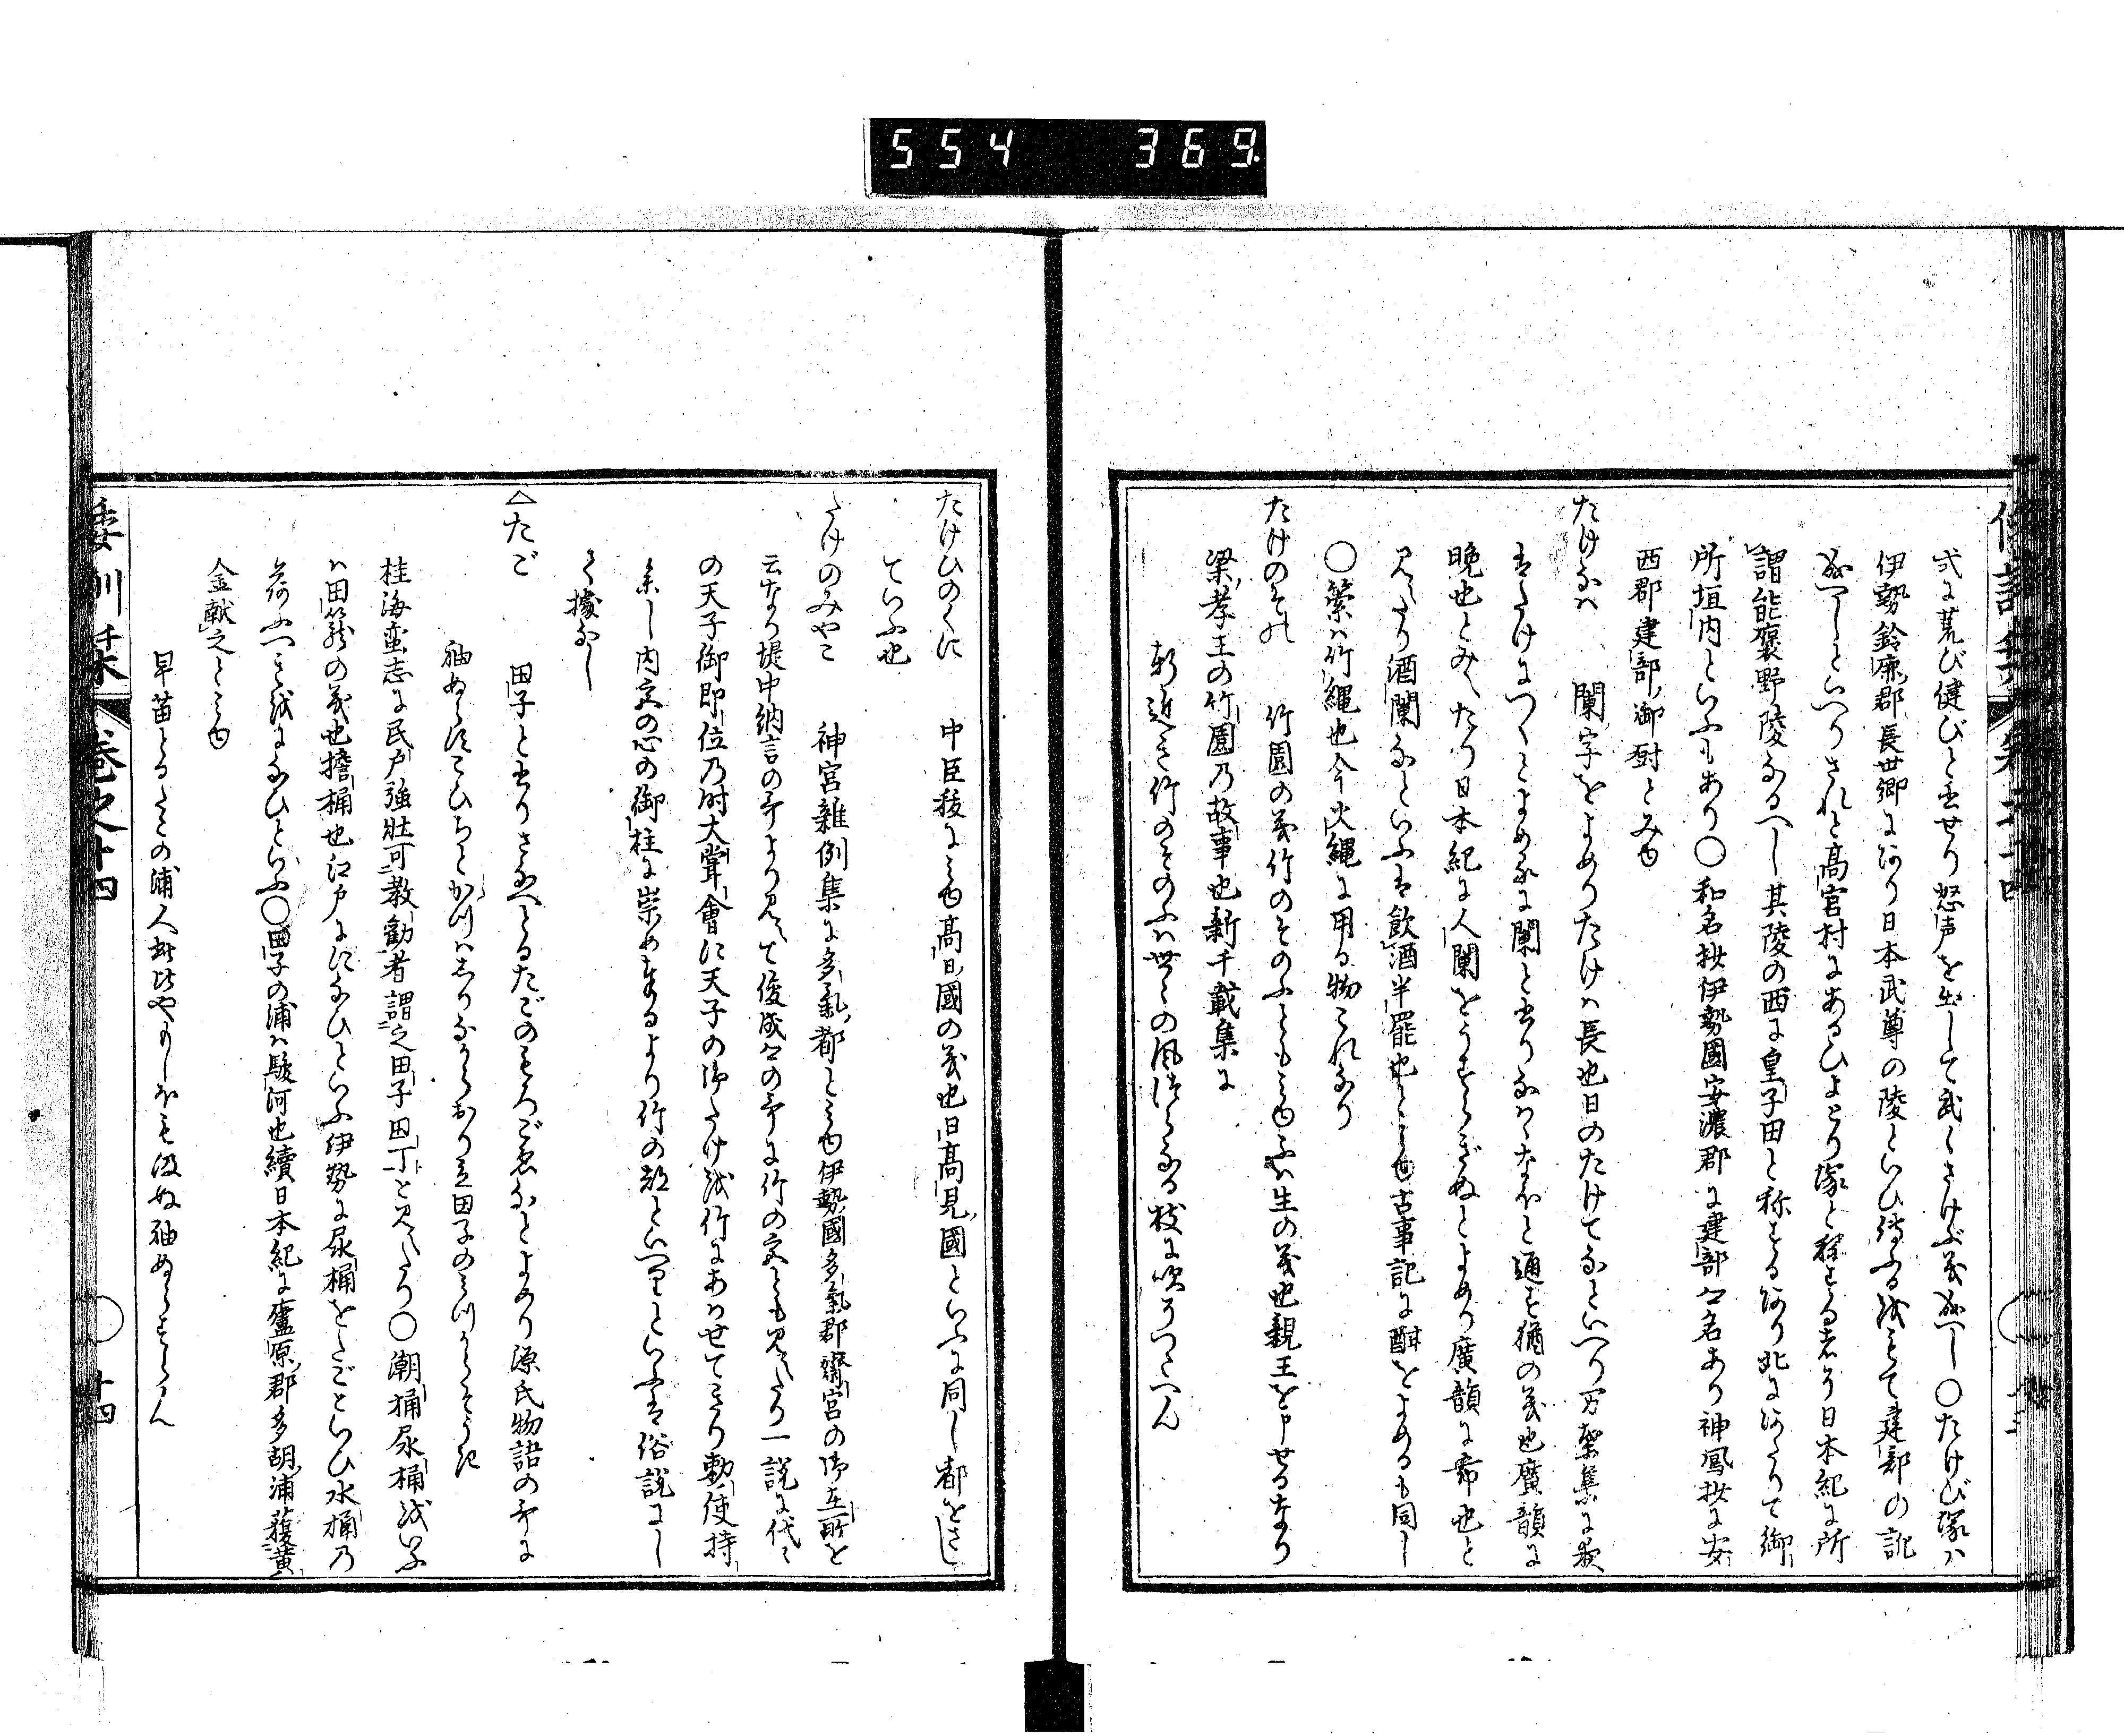 554 369
式に荒び健びと書せり怒声を出して武くさけぶ義成へし〇たけび塚ハ
伊勢鈴鹿郡長世郷にあり日本武尊の陵といひ傳ふるをもて建部の訛
成へしといへりされと高宮村にあるひよとり塚と称する者より日本紀に所
謂能褒野陵なるへし其陵の西に皇子田と称するあり北にあたりて御
所垣内といふもあり〇和名抄伊勢國安濃郡に建部名あり神鳳抄に安
西郡建部御厨とみゆ
たけなハ 闌字をよめりたけハ長也日のたけてなといへり万葉集に夜
はたけにつゝとよめるに闌と書りなハゝなほと通す猶の義也廣韻に
晩也とみえたり日本紀に人闌をうすらぎぬとよめり廣韻に希也と
見えたり酒闌なといふは飲酒半罷也とみゆ古事記に酣をよめるも同し
〇縈ハ竹縄也今火縄に用る物これなり
たけのその 竹園の義竹のそのふともみゆふハ生の義也親王を申せるなり
梁孝王の竹園乃故事也新千載集に
新近き竹のそのふハ世々の風
たけひのくに 中臣祓にみゆ高日國の義也日高見國といふに同し都をさし
ていふ也
たけのみやこ 神宮雜例集に多氣都とみゆ伊勢國多氣郡齋宮の御在所を
云なり堤中納言の哥より見えて俊成の哥に竹の宮とも見えたり一説に代々
の天子御即位乃時大嘗會に天子の御たけを竹にあハせてきり勅使持
参し内宮の心の御柱に崇め奉るより竹の都といへりといふは俗説にし
て據なし
△たご 田子と書りさなへとるたごのもろごゑなとよめり源氏物語の哥に
袖ぬるゝこひちとかつハしりなからおり立田子のみつからそうき
桂海蛮志に民戸強壮可教勸者謂之田子田丁と見えたり〇潮桶尿桶をいふ
ハ田籠の義也擔桶也江戸ににないといふ伊勢に尿桶をたごといひ水桶乃
荷ふへきをになひといふ〇田子の浦ハ駿河也續日本紀に廬原郡多胡浦獲黄
金献之とみゆ
早苗とるたこの浦人此比やもしほも汲ぬ袖ぬらすらん
倭訓栞 巻之十四 〇 十四